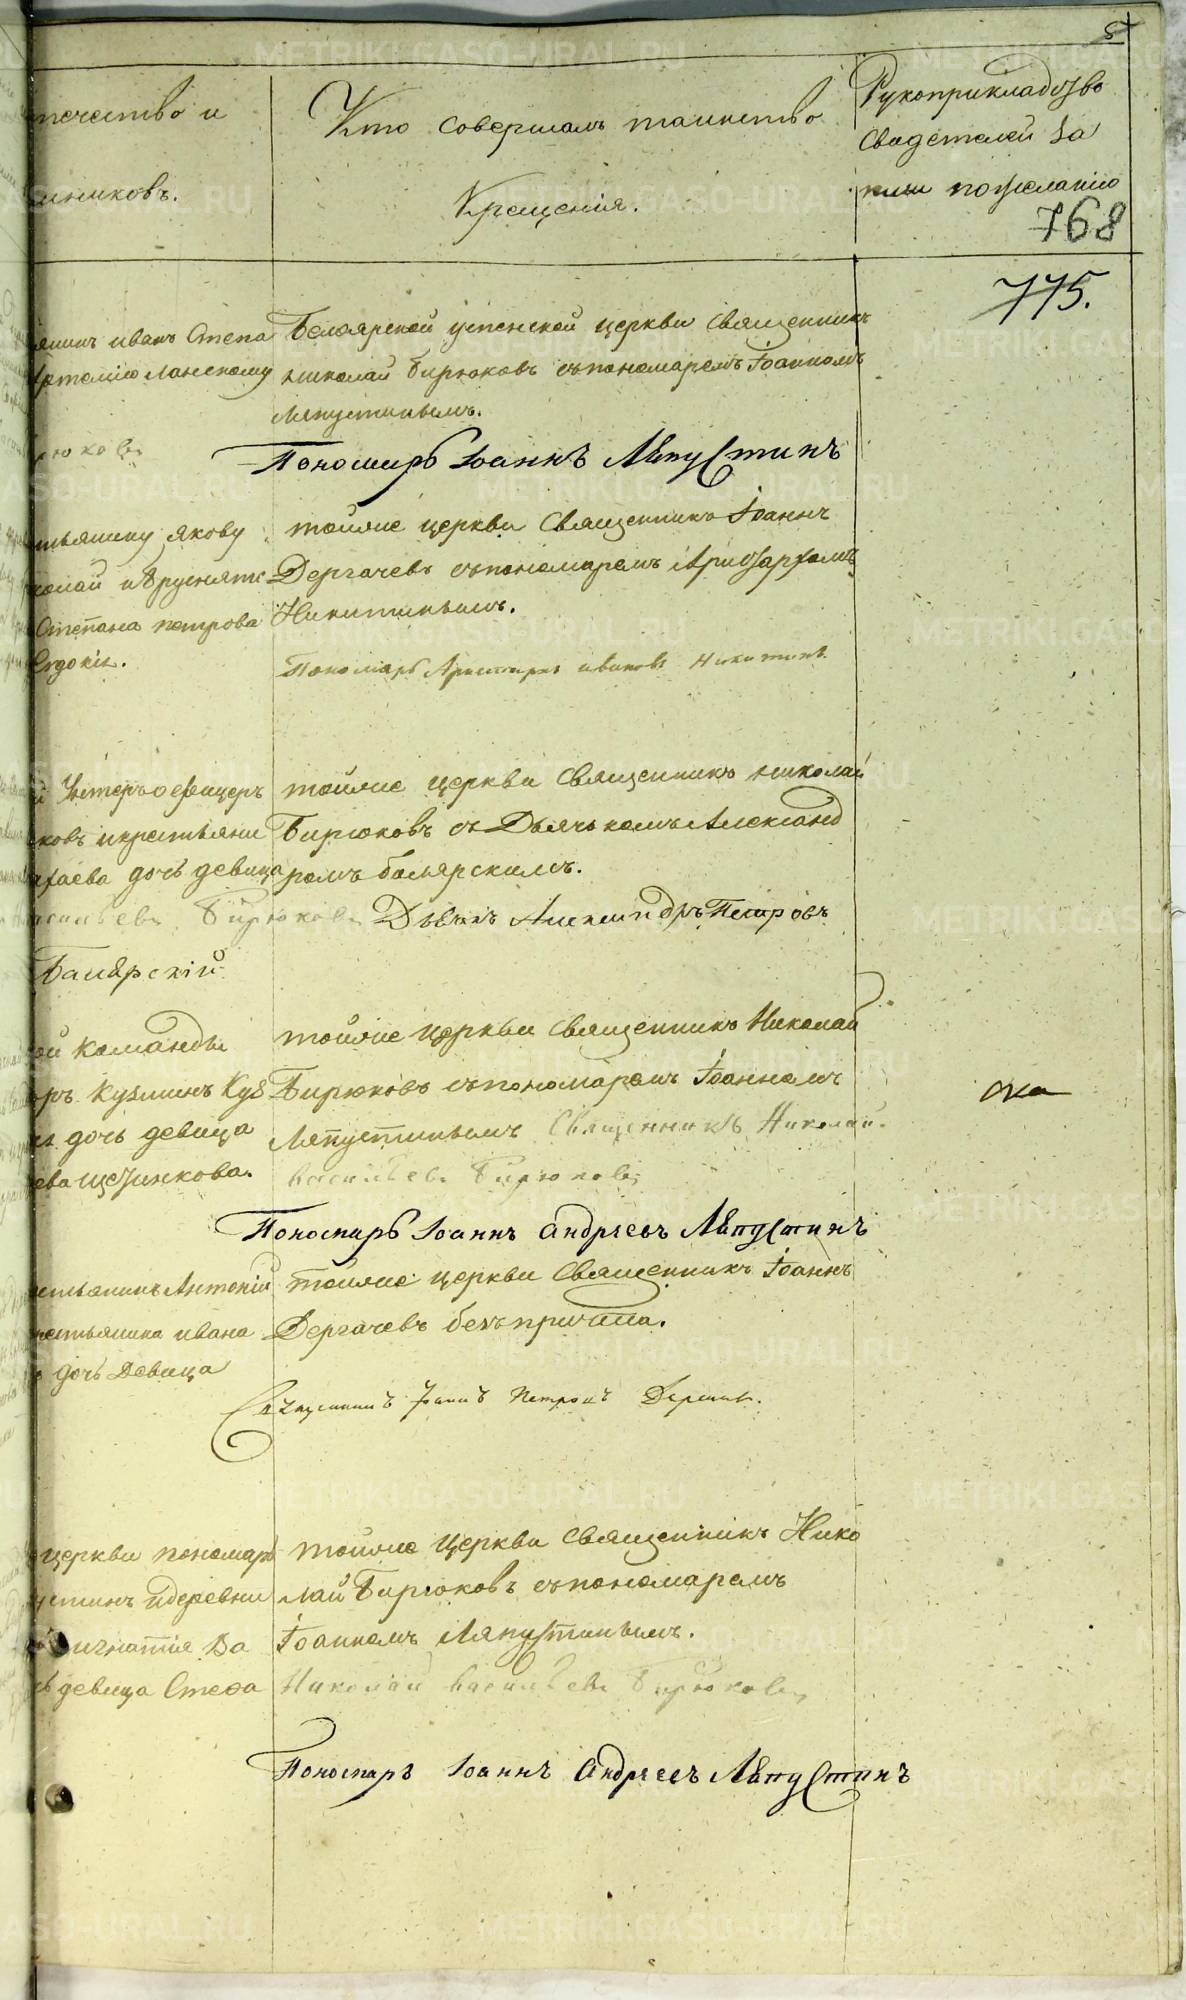 5
течество и
никовъ.
Кто совершалъ таинство
Крещенія.
Рукоприкладство
свидетелей за
писи по желанію
768
775.
янинъ иванъ Степа
Артемію Ланскому
рюковъ
Белоярской успенской церкви священникъ
николай Бирюковъ съ пономаремъ Іоанномъ
Ляпустинымъ.
Пономарь Іоаннъ Ляпустинъ
тьянину якову
Степана петрова
Евдокія.
тойже церкви Священникъ Іоаннъ
Дергачевъ съ пономаремъ Аристархомъ
Никитинымъ.
Пономарь Аристархъ ивановъ Никитинъ
й Унтеръ офицеръ
ковъ и крестьяни
хаева дочь девица
Васильевъ Бирюковъ
тойже церкви Священникъ николай
Бирюковъ съ Дьячькомъ Александ
ромъ
Дьячекъ Александръ Петровъ
ой команды
оръ Кузминъ Куз
дочь девица
ева щетинкова.
тойже церкви священникъ Николай
Бирюковъ съ пономаремъ Іоанномъ
Ляпустинымъ Священникъ Николай
васильевъ Бирюковъ
Пономарь Іоаннъ Андреевъ Ляпустинъ
естьянинъ Антоній
рестьянина ивана
дочь Девица
тойже церкви Священникъ Іоаннъ
Дергачевъ безъ причта.
Священникъ Іоаннъ Петровъ Дергачевъ
церкви пономарь
устинъ и деревни
Игнатія Ва
девица Стефа
тойже церкви священникъ Нико
лай Бирюковъ съ пономаремъ
Іоанномъ Ляпустинымъ.
Николай васильевъ Бирюковъ
Пономарь Іоаннъ Андреевъ Ляпустинъ
METRIKI.GASO-URAL.RU